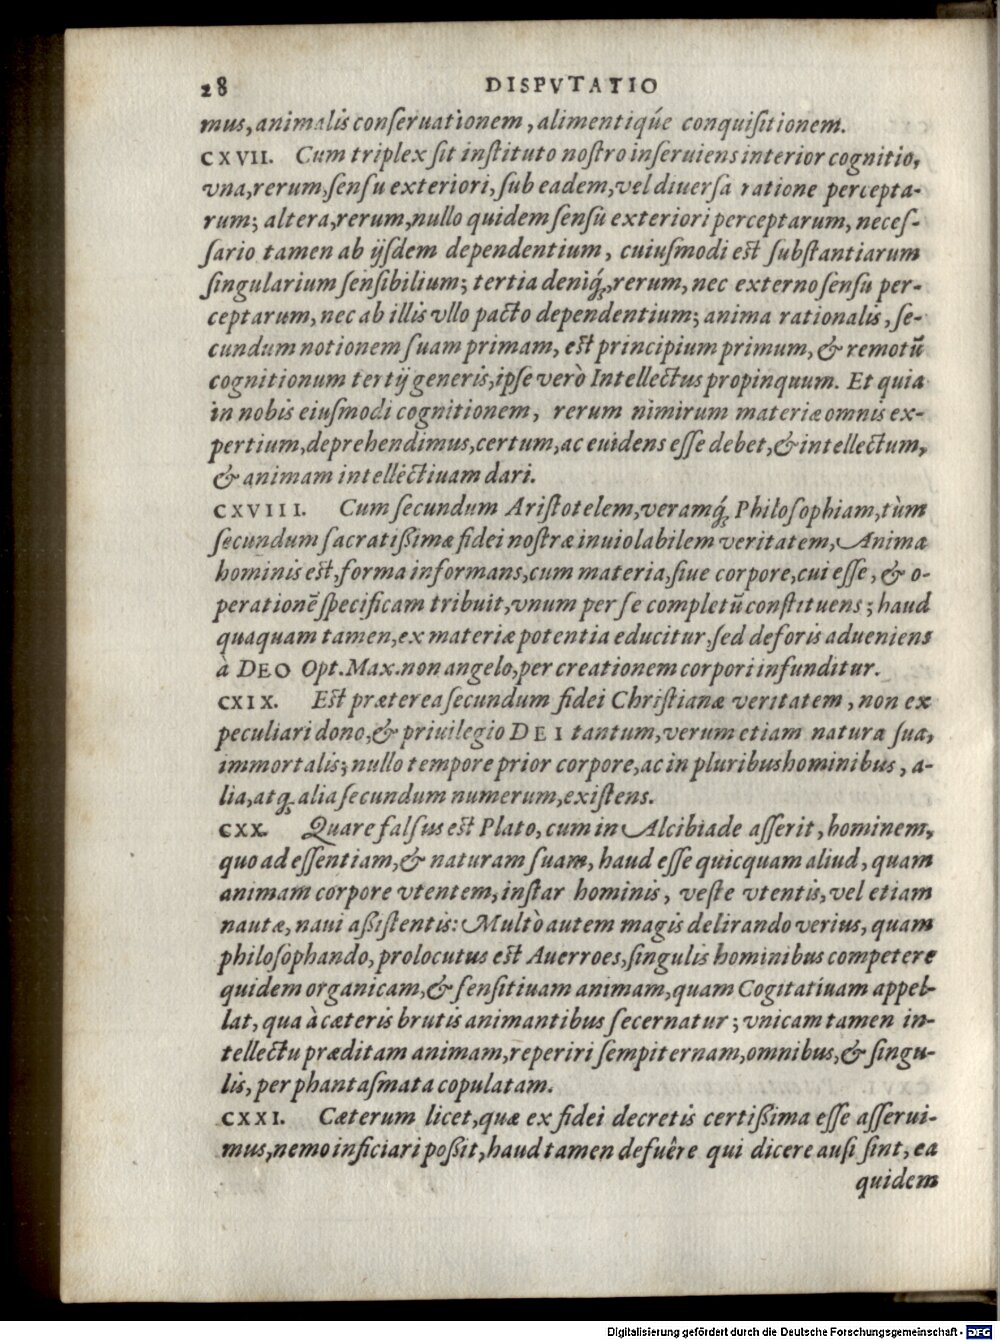 28 DISPVTATIO
mus, animalis conſeruationem, alimentiq́ue conquiſitionem.
CXVII. Cum triplex ſit inſtituto noſtro inſeruiens interior cognitio,
vna, rerum, ſenſu exteriori, ſub eadem, vel diuerſa ratione percepta-
rum; altera, rerum, nullo quidem ſenſu exteriori perceptarum, neceſ-
ſario tamen ab ijſdem dependentium, cuiuſmodi eſt ſubſtantiarum
ſingularium ſenſibilium; tertia deniq́, rerum, nec externo ſenſu per-
ceptarum, nec ab illis vllo pacto dependentium; anima rationalis, ſe-
cundum notionem ſuam primam, eſt principium primum, & remotū
cognitionum tertij generis, ipſe verò Intellectus propinquum. Et quia
in nobis eiuſmodi cognitionem, rerum nimirum materiæ omnis ex-
pertium, deprehendimus, certum, ac euidens eſſe debet, & intellectum,
& animam intellectiuam dari.
CXVIII. Cum ſecundum Ariſtotelem, veramq́ Philoſophiam, tùm
ſecundum ſacratißimæ fidei noſtræ inuiolabilem veritatem, Anima
hominis eſt, forma informans, cum materia, ſiue corpore, cui eſſe, & o-
perationē ſpecificam tribuit, vnum per ſe completū conſtituens; haud
quaquam tamen, ex materiæ potentia educitur, ſed deforis adueniens
à DEO Opt. Max. non angelo, per creationem corpori infunditur.
CXIX. Eſt præterea ſecundum fidei Chriſtianæ veritatem, non ex
peculiari dono, & priuilegio DEI tantum, verum etiam natura ſua,
immortalis; nullo tempore prior corpore, ac in pluribus hominibus, a-
lia, atq́ alia ſecundum numerum, exiſtens.
CXX. Quare falſus eſt Plato, cum in Alcibiade aſſerit, hominem,
quo ad eſſentiam, & naturam ſuam, haud eſſe quicquam aliud, quam
animam corpore vtentem, inſtar hominis, veſte vtentis, vel etiam
nautæ, naui aßiſtentis: Multò autem magis delirando verius, quam
philoſophando, prolocutus eſt Auerroes, ſingulis hominibus competere
quidem organicam, & ſenſitiuam animam, quam Cogitatiuam appel-
lat, qua à cæteris brutis animantibus ſecernatur; vnicam tamen in-
tellectu præditam animam, reperiri ſempiternam, omnibus, & ſingu-
lis, per phantaſmata copulatam.
CXXI. Cæterum licet, quæ ex fidei decretis certißima eſſe aſſerui-
mus, nemo inficiari poßit, haud tamen defuêre qui dicere auſi ſint, ea
quidem
Digitalisierung gefördert durch die Deutsche Forschungsgemeinschaft - DFG